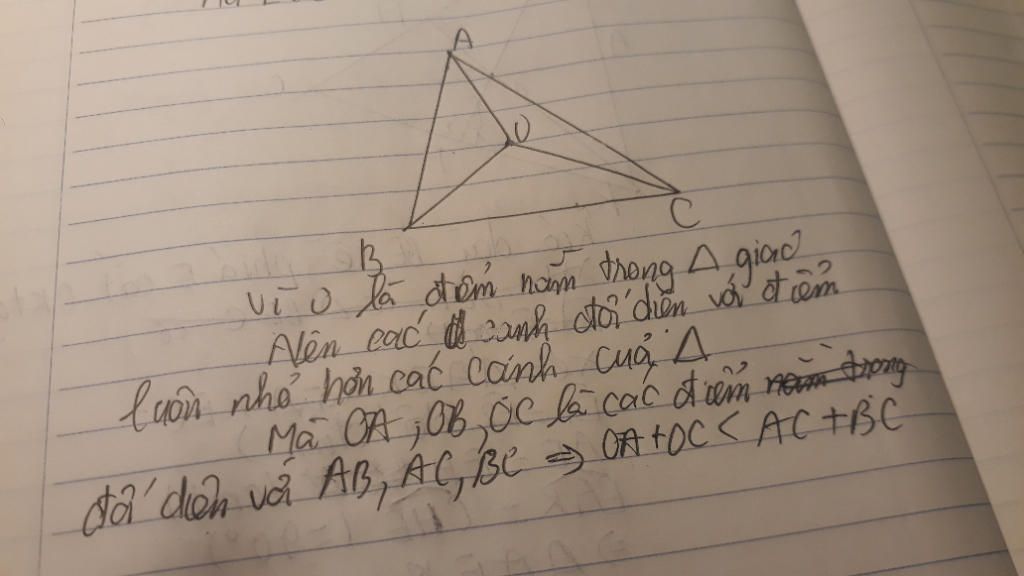 A
O
C
B
Vì O là điểm nằm trong Δ giao
Nên các cạnh đối diện với điểm
luôn nhỏ hơn các cánh cuả Δ
Mà OA, OB, OC là các điểm nằm trong
đối diện với AB, AC, BC => OA + OC < AC + BC